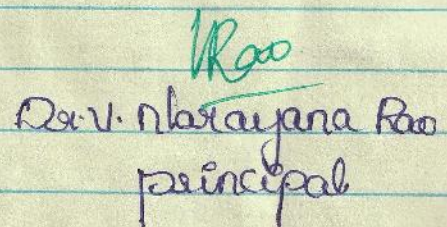 VRao
Dr. V. Narayana Rao
principal